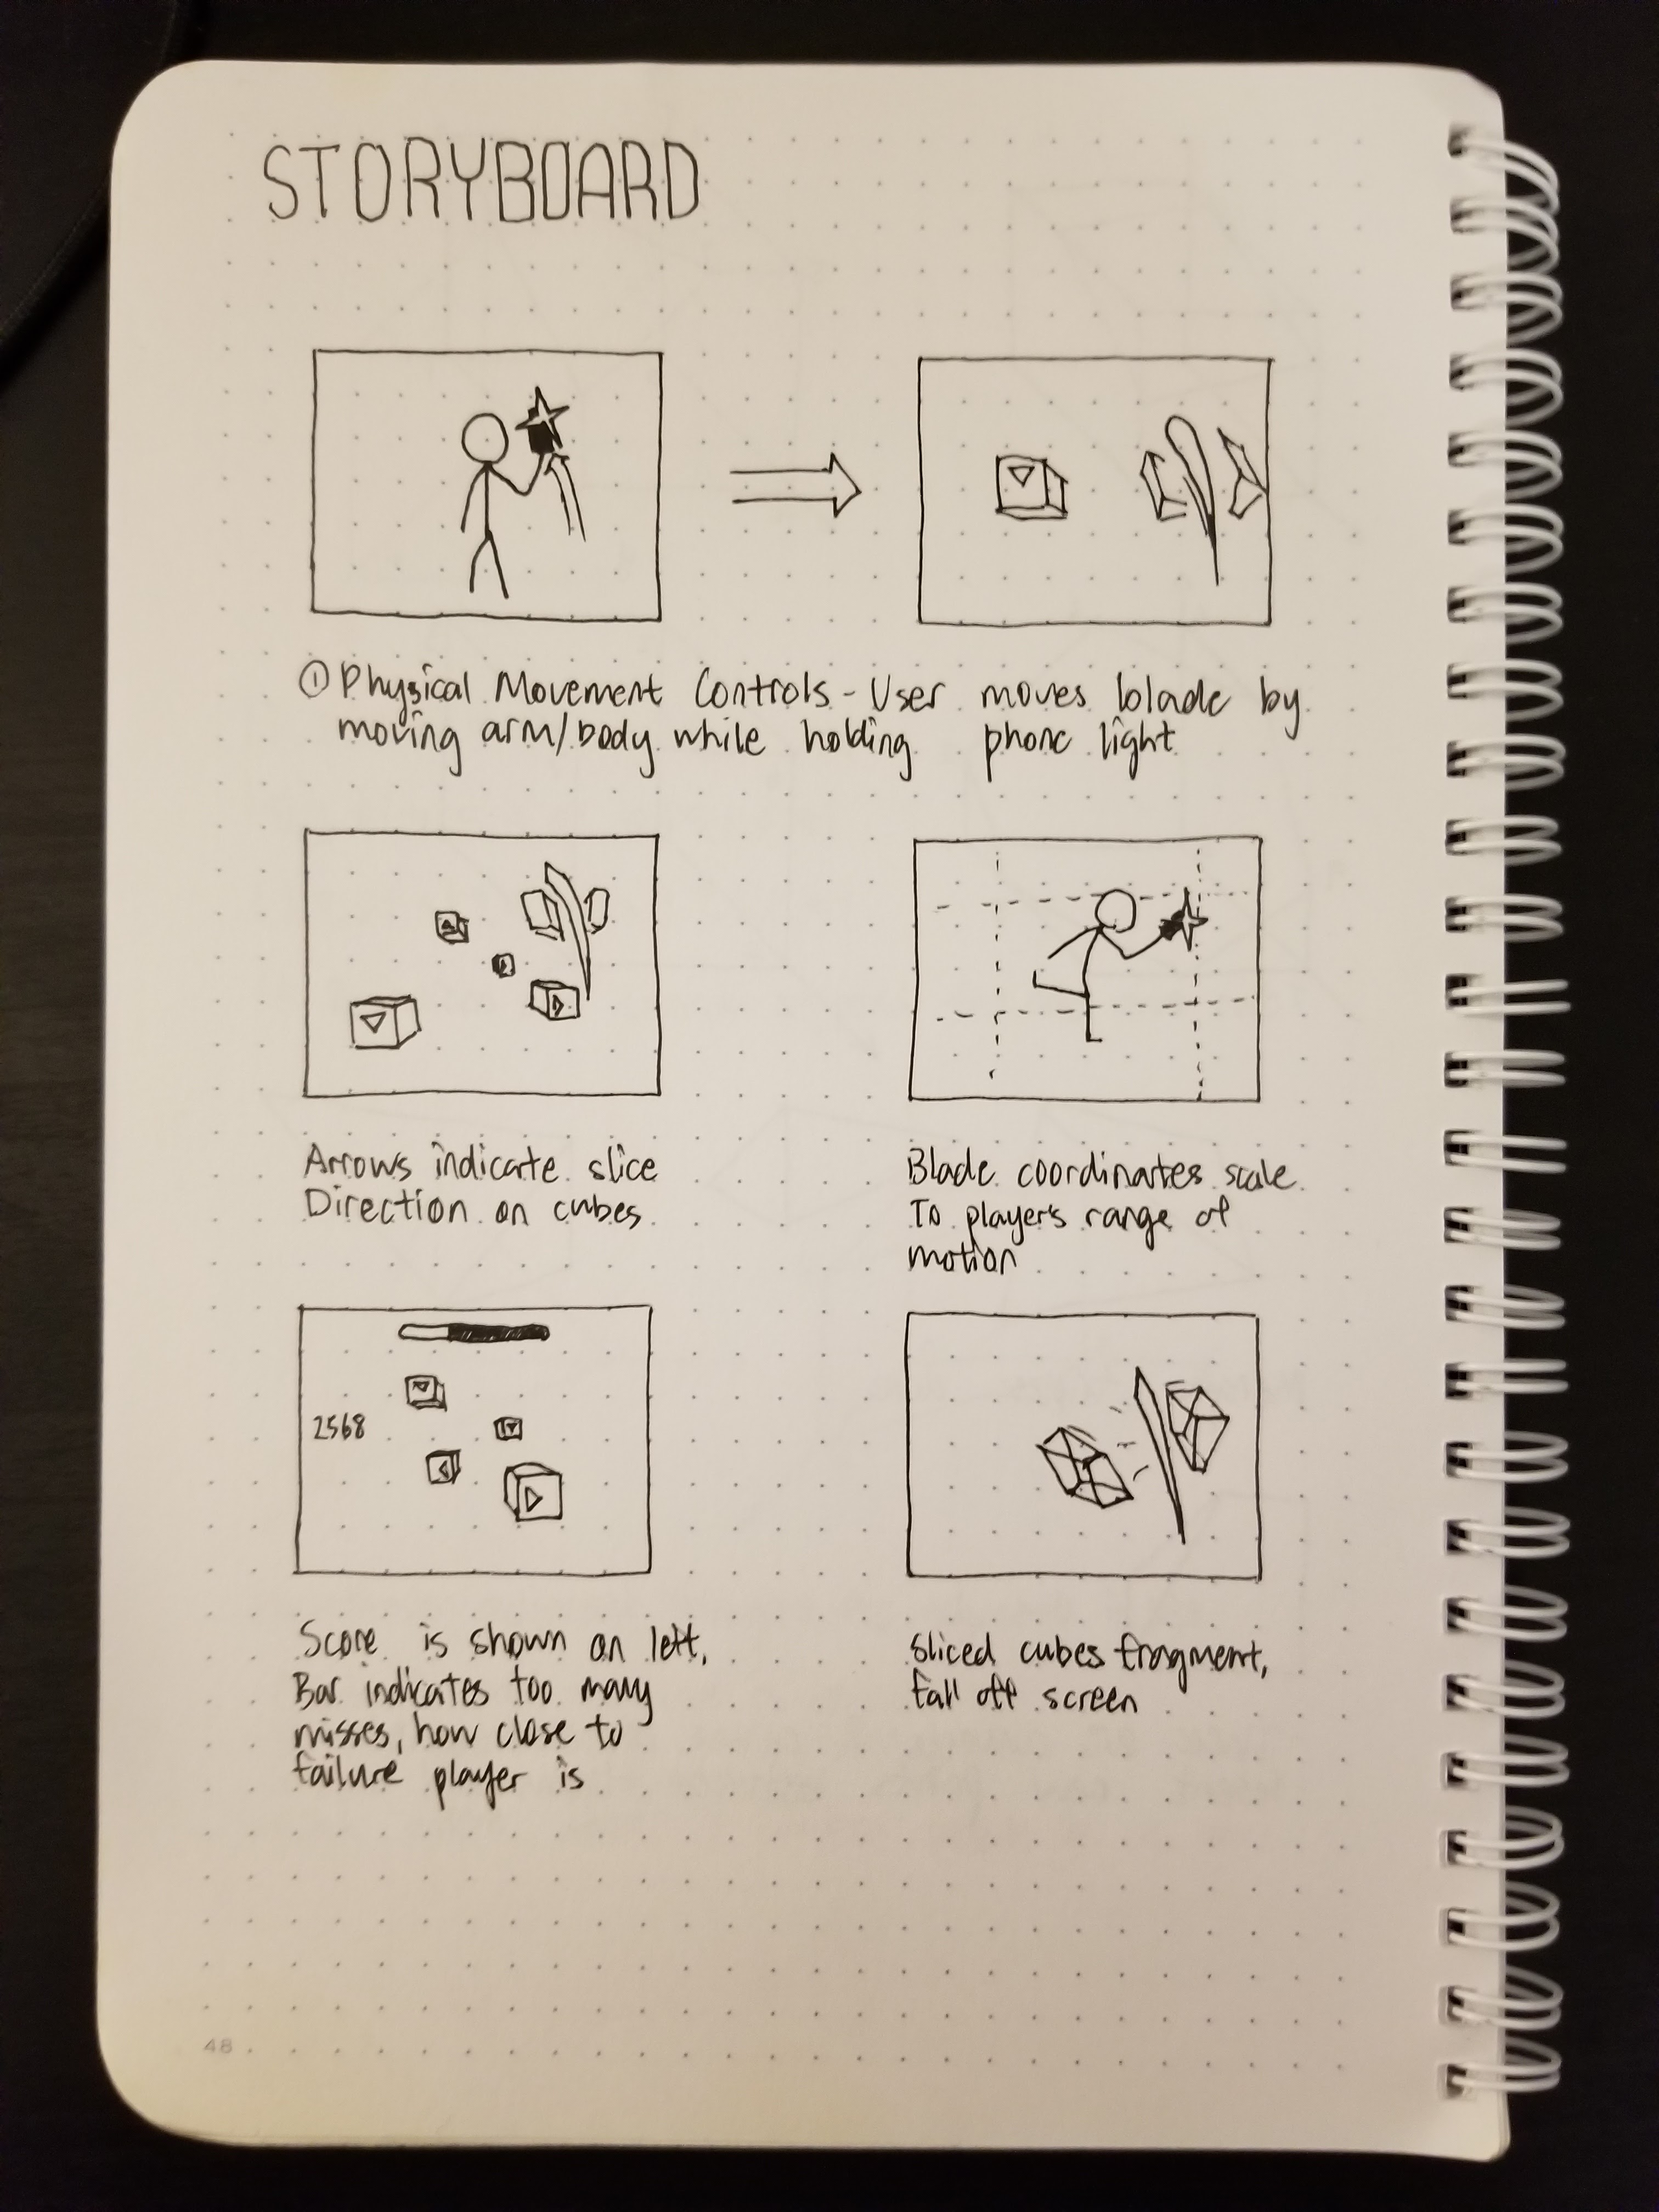 STORYBOARD
① Physical Movement Controls - User moves blade by
moving arm/body while holding phone light
Arrows indicate slice
Direction on cubes
Blade coordinates scale
To player's range of
motion
2568
Score is shown on left,
Bar indicates too many
misses, how close to
failure player is
sliced cubes fragment,
fall off screen
48